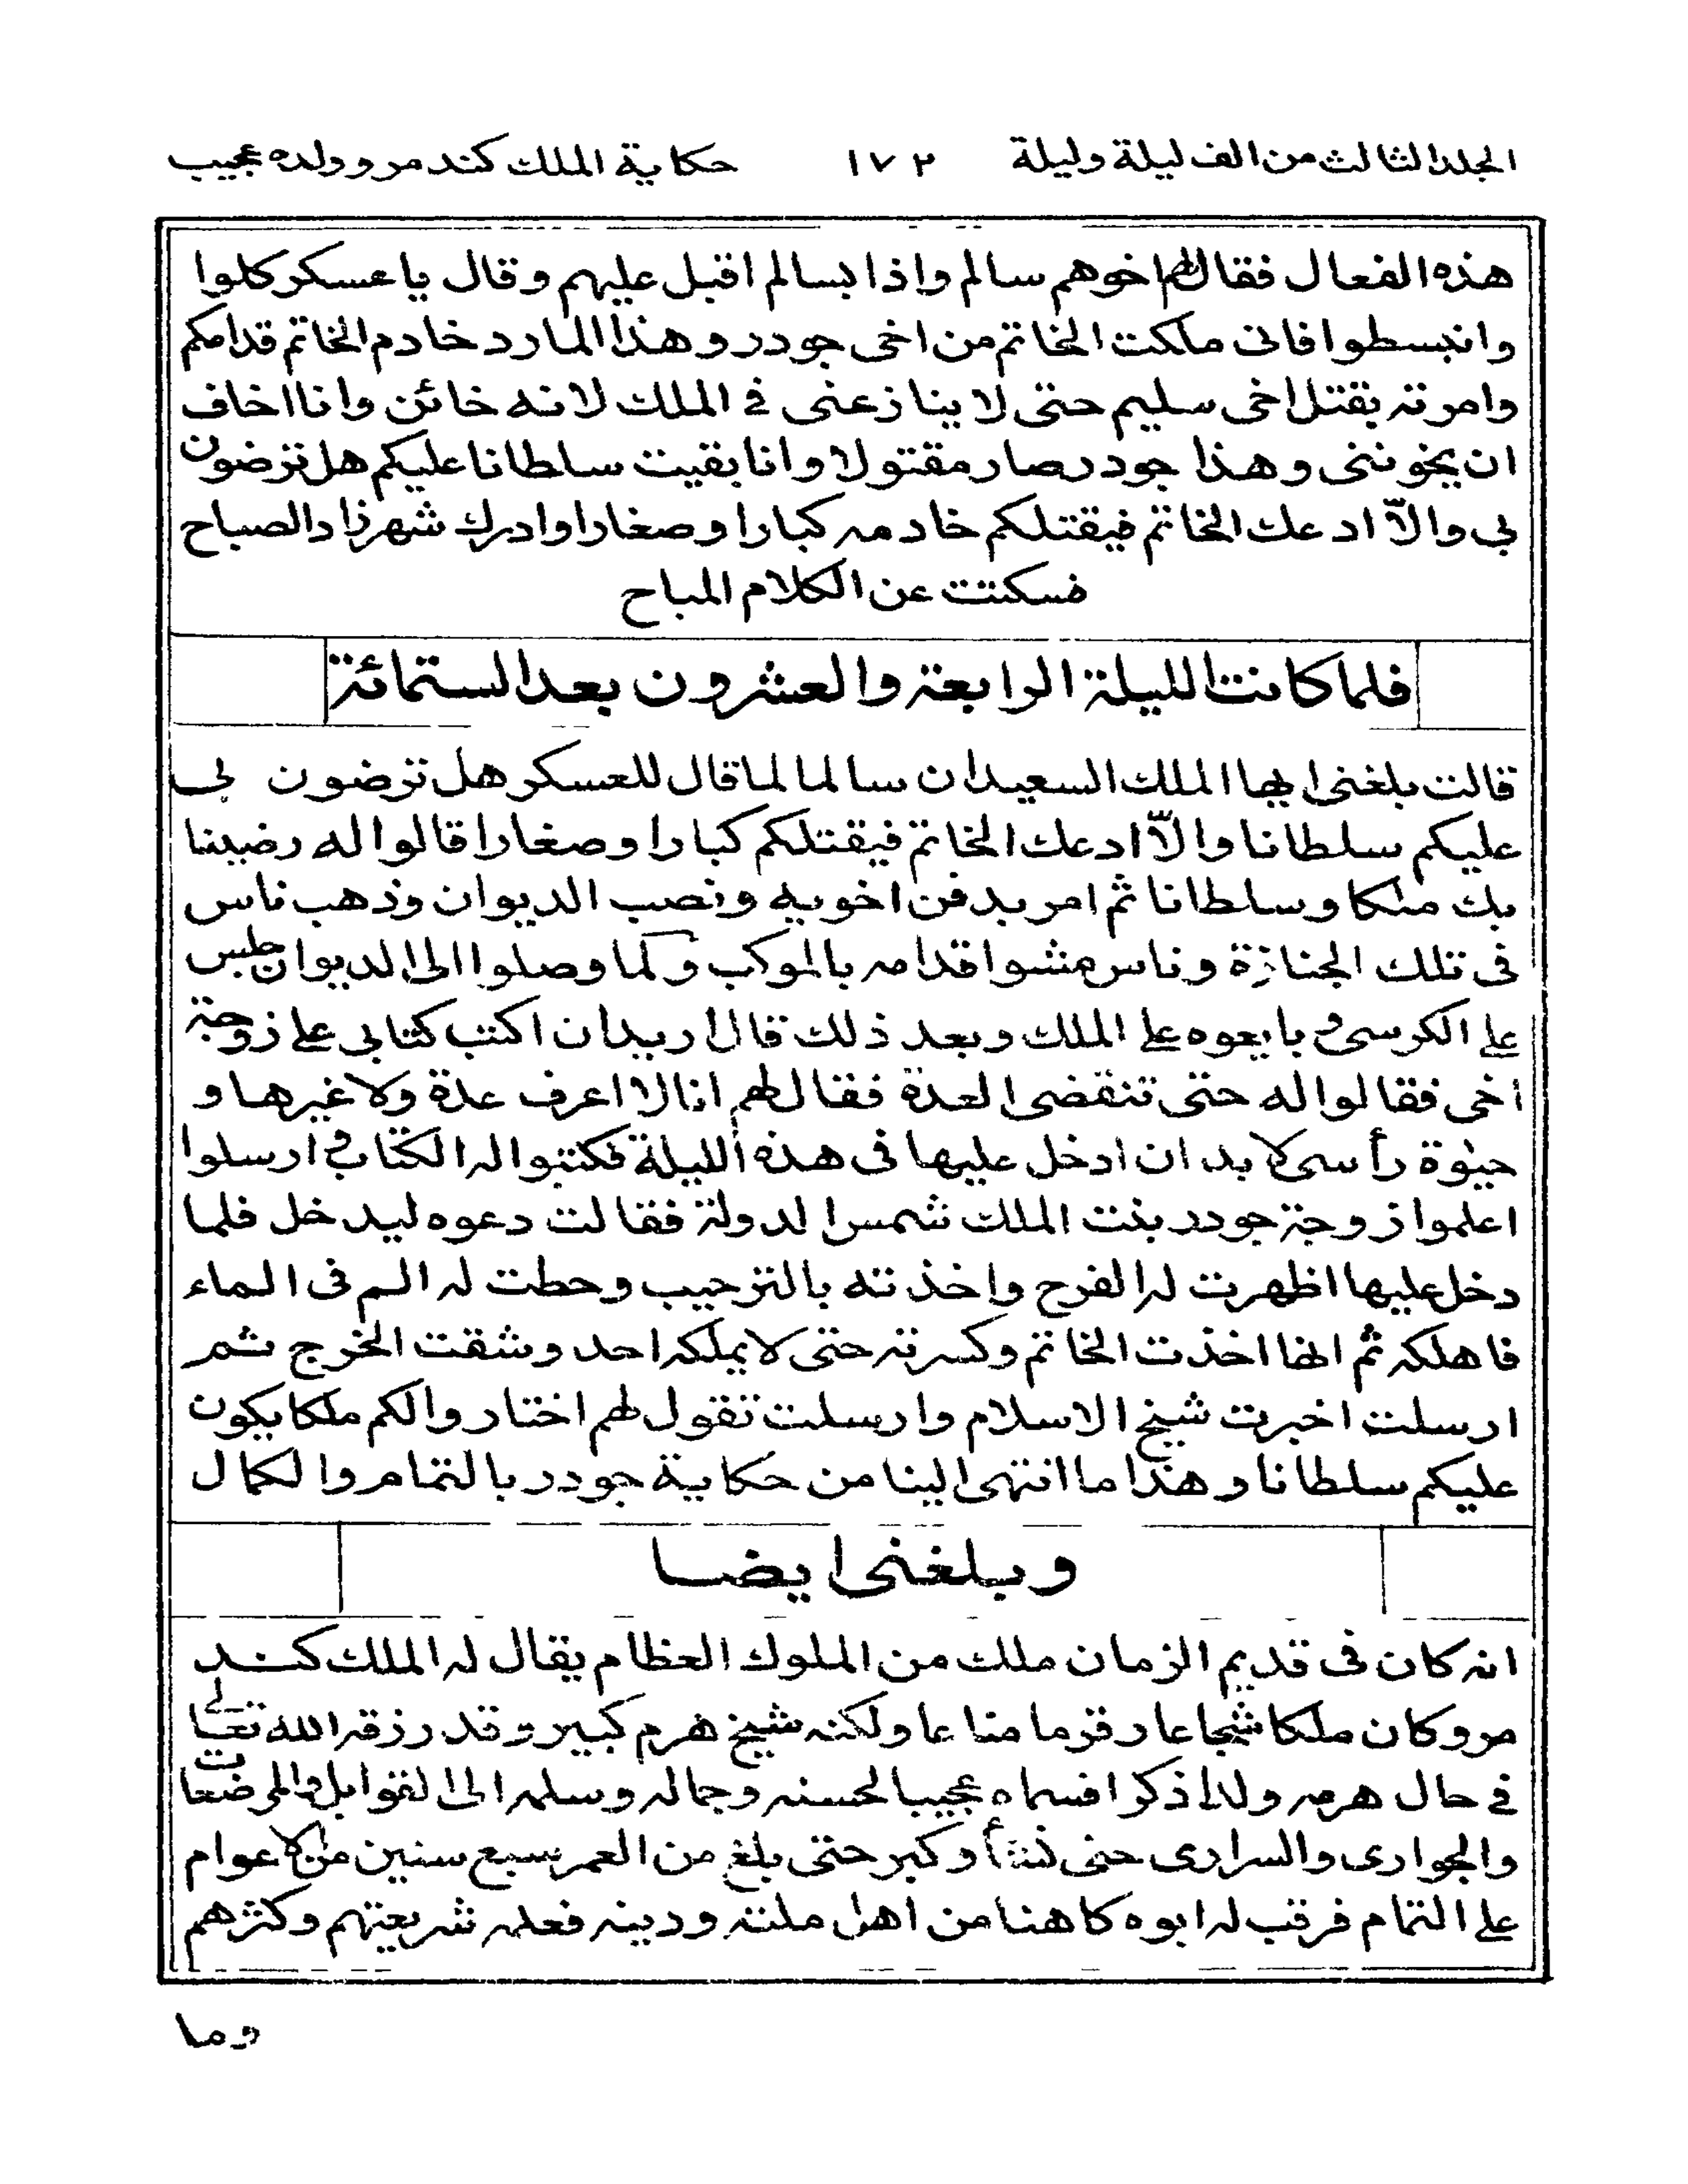 الجلد الثالث من الف ليلة وليلة ١٧٢ حكاية الملك كندمر وولده عجيب
هذه الفعال فقال لهم اخوهم سالم واذا بسالم اقبل عليهم وقال يا عسكر كلوا
وانبسطوا فانى ملكت الخاتم من اخى جودر وهذا المارد خادم الخاتم قدامكم
وامرته بقتل اخى سليم حتى لا ينازعنى فى الملك لانه خائن وانا اخاف
ان يخوننى وهذا جودر صار مقتولا وانا بقيت سلطانا عليكم هل ترضون
بى والّا ادعك الخاتم فيقتلكم خادمه كبارا وصغارا وادرك شهرزاد الصباح
فسكتت عن الكلام المباح
فلما كانت الليلة الرابعة والعشرون بعد الستمائة
قالت بلغنى ايها الملك السعيد ان سالما لما قال للعسكر هل ترضون بى
عليكم سلطانا والّا ادعك الخاتم فيقتلكم كبارا وصغارا قالوا له رضينا
بك ملكا وسلطانا ثم امر بدفن اخويه ونصب الديوان وذهب ناس
فى تلك الجنازة وناس مشوا قدامه بالموكب ولما وصلوا الى الديوان جلس
على الكرسى وبايعوه على الملك وبعد ذلك قال اريد ان اكتب كتابى على زوجة
اخى فقالوا له حتى تنقضى العدة فقال لهم انا لا اعرف عدة ولا غيرها و
حيوة رأسى لا بد ان ادخل عليها فى هذه الليلة فكتبوا له الكتاب وارسلوا
اعلموا زوجة جودر بنت الملك شمس الدولة فقالت دعوه ليدخل فلما
دخل عليها اظهرت له الفرح واخذته بالترحيب وحطت له السم فى الماء
فاهلكه ثم انها اخذت الخاتم وكسرته حتى لا يملكه احد وشقت الخرج ثم
ارسلت اخبرت شيخ الاسلام وارسلت تقول لهم اختاروا لكم ملكا يكون
عليكم سلطانا وهذا ما انتهى الينا من حكاية جودر بالتمام والكمال
وبلغنى ايضا
انه كان فى قديم الزمان ملك من الملوك العظام يقال له الملك كند
مر وكان ملكا شجاعا وقرما مناعا ولكنه شيخ هرم كبير وقد رزقه الله تعالى
فى حال هرمه ولدا ذكرا فسماه عجيبا لحسنه وجماله وسلمه الى القوابل والمرضعات
والجوارى والسرارى حتى نشأ وكبر حتى بلغ من العمر سبع سنين من الاعوام
على التمام فرتب له ابوه كاهنا من اهل ملته ودينه فعلمه شريعتهم وكفرهم
وما